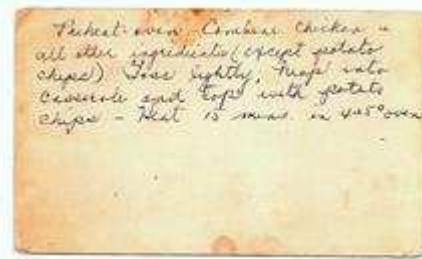 Preheat oven - Combine chicken &
all other ingredients (except potato
chips) Toss lightly, heap into
casserole and top with potato
chips - Heat 15 mins. in 425° oven